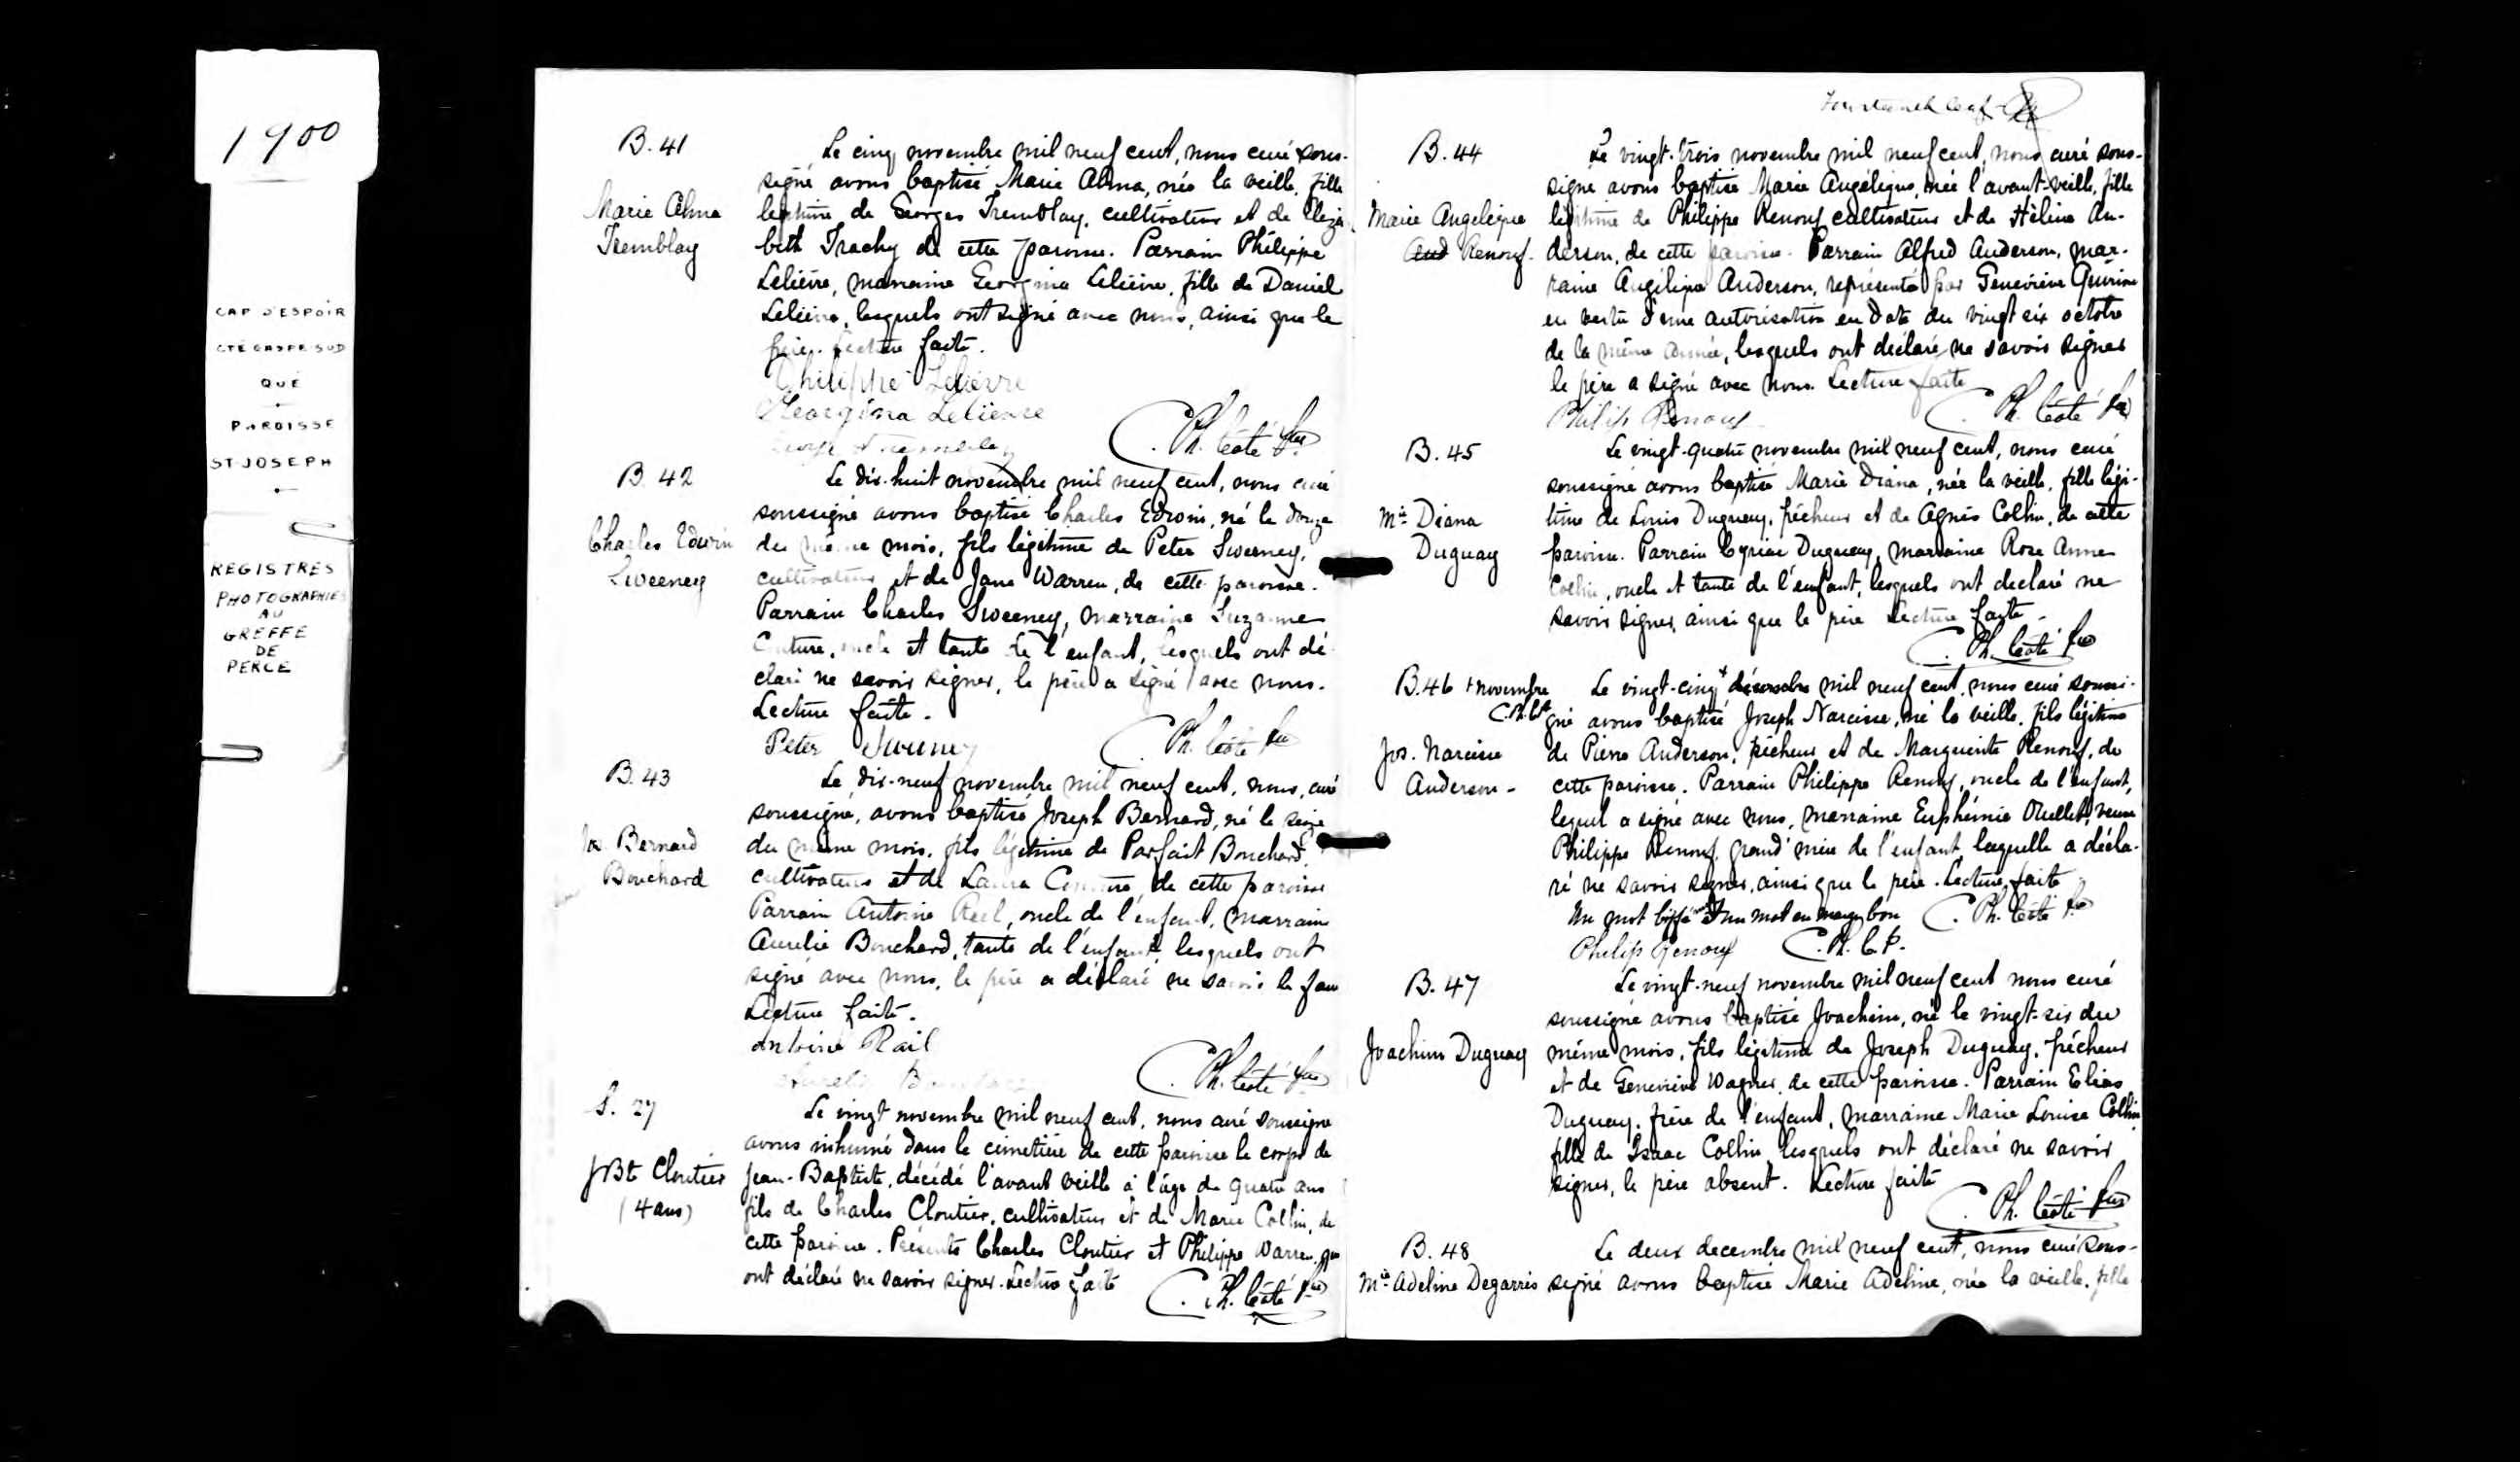 1900
CAP D'ESPOIR
CTÉ GASPE-SUD
QUÉ
PAROISSE
ST JOSEPH
REGISTRES
PHOTOGRAPHIES
AU
GREFFE
DE
PERCE
B. 41
Marie Alma
Tremblay
Le cinq novembre mil neuf cent, nous curé sous-
signé avons baptisé Marie Alma, née la veille, fille
légitime de Georges Tremblay, cultivateur et de Eliza-
beth Trachy de cette paroisse. Parrain Philippe
Lelièvre, marraine Georgina Lelièvre, fille de Daniel
Lelièvre, lesquels ont signé avec nous, ainsi que le
père. Lecture faite.
Philippe Lelièvre
Georgina Lelievre
C. Ph. Côté Ptre
B. 42
Charles Edwin
Sweeney
Le dix-huit novembre mil neuf cent, nous curé
soussigné avons baptisé Charles Edwin, né le douze
du même mois, fils légitime de Peter Sweeney,
cultivateur et de Jane Warren, de cette paroisse.
Parrain Charles Sweeney, marraine Suzanne
Couture, oncle et tante de l'enfant, lesquels ont dé-
claré ne savoir signer, le père a signé avec nous.
Lecture faite.
Peter Sweeney
C. Ph. Côté Ptre
B. 43
Jos. Bernard
Bouchard
Le dix-neuf novembre mil neuf cent, nous, curé
soussigné, avons baptisé Joseph Bernard, né le seize
du même mois, fils légitime de Parfait Bouchard,
cultivateur et de Laura Couture, de cette paroisse
Parrain Antoine Rail, oncle de l'enfant, marraine
Aurelie Bouchard, tante de l'enfant, lesquels ont
signé avec nous, le père a déclaré ne savoir le faire
Lecture faite.
Antoine Rail
C. Ph. Côté Ptre
S. 27
J Bte Cloutier
(4 ans)
Le vingt novembre mil neuf cent, nous curé soussigné
avons inhumé dans le cimetière de cette paroisse le corps de
Jean-Baptiste, décédé l'avant veille à l'âge de quatre ans
fils de Charles Cloutier, cultivateur et de Marie Collin, de
cette paroisse. Présents Charles Cloutier et Philippe Warren, qui
ont déclaré ne savoir signer. Lecture faite
C. Ph. Côté Ptre
Fourteenth leaf
B. 44
Marie Angelique
And Renouf-
Le vingt-trois novembre mil neuf cent, nous curé sous-
signé avons baptisé Marie Angélique, née l'avant-veille, fille
légitime de Philippe Renouf cultivateur et de Hélène An-
derson, de cette paroisse. Parrain Alfred Anderson, mar-
raine Angélique Anderson, représentée par Geneviève
en vertu d'une autorisation en date du vingt six octobre
de la même année, lesquels ont déclaré ne savoir signer
le père a signé avec nous. Lecture faite
Philip Renouf
C. Ph. Côté Ptre
B. 45
Mie Diana
Duguay
Le vingt-quatre novembre mil neuf cent, nous curé
soussigné avons baptisé Marie Diana, née la veille, fille légi-
time de Louis Duguay, pêcheur et de Agnès Collin, de cette
paroisse. Parrain Cyriac Duguay, marraine Rose Anne
Collin, oncle et tante de l'enfant, lesquels ont declaré ne
savoir signer, ainsi que le père Lecture faite
C. Ph. Côté Ptre
B. 46 + novembre
C. Ph. C. Pt
Jos. Narcisse
Anderson -
Le vingt-cinq + décembre mil neuf cent, nous curé soussi-
gné avons baptisé Joseph Narcisse, né la veille, fils légitime
de Pierre Anderson, pêcheur et de Marguerite Renouf, de
cette paroisse. Parrain Philippe Renouf, oncle de l'enfant,
lequel a signé avec nous, marraine Euphémie Ouellet, veuve
Philippe Renouf, grand'mère de l'enfant, laquelle a décla-
ré ne savoir signer, ainsi que le père. Lecture faite
Un mot biffé nul Un mot en marge bon
C. Ph. Côté Ptre
Philip Renouf
C. Ph. C. P.
B. 47
Joachim Duguay
Le vingt-neuf novembre mil neuf cent nous curé
soussigné avons baptisé Joachim, né le vingt-six du
même mois, fils légitime de Joseph Duguay, pêcheur
et de Geneviève Wagner, de cette paroisse. Parrain Elias
Duguay, frère de l'enfant, marraine Marie Louise Collin,
fille de Isaac Collin, lesquels ont déclaré ne savoir
signer, le père absent. Lecture faite
C. Ph. Côté Ptre
B. 48
Mie Adeline Degarris
Le deux decembre mil neuf cent, nous curé sous-
signé avons baptisé Marie Adeline, née la veille, fille